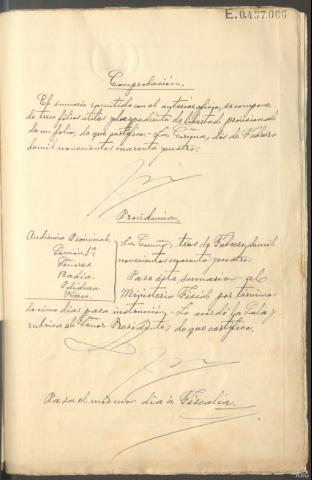 E.0.457.066
Comprobación.
El sumario remitido con el anterior oficio, se compone
de tres folios utiles y la expediente de libertad provisional
de un folio, de que certifico.- La Coruña, dos de Febrero
de mil novecientos cuarenta y cuatro.
Providencia.
Audiencia Provincial.
La Coruña, tres de Febrero, de mil
novecientos cuarenta y cuatro.
Pase éste sumario al
Ministerio Fiscal por termino
de cinco dias para instrucción.- Lo acordó la Sala y
rubrica el Señor Presidente, de que certifico.
Pasa el mismo dia á Fiscalía.